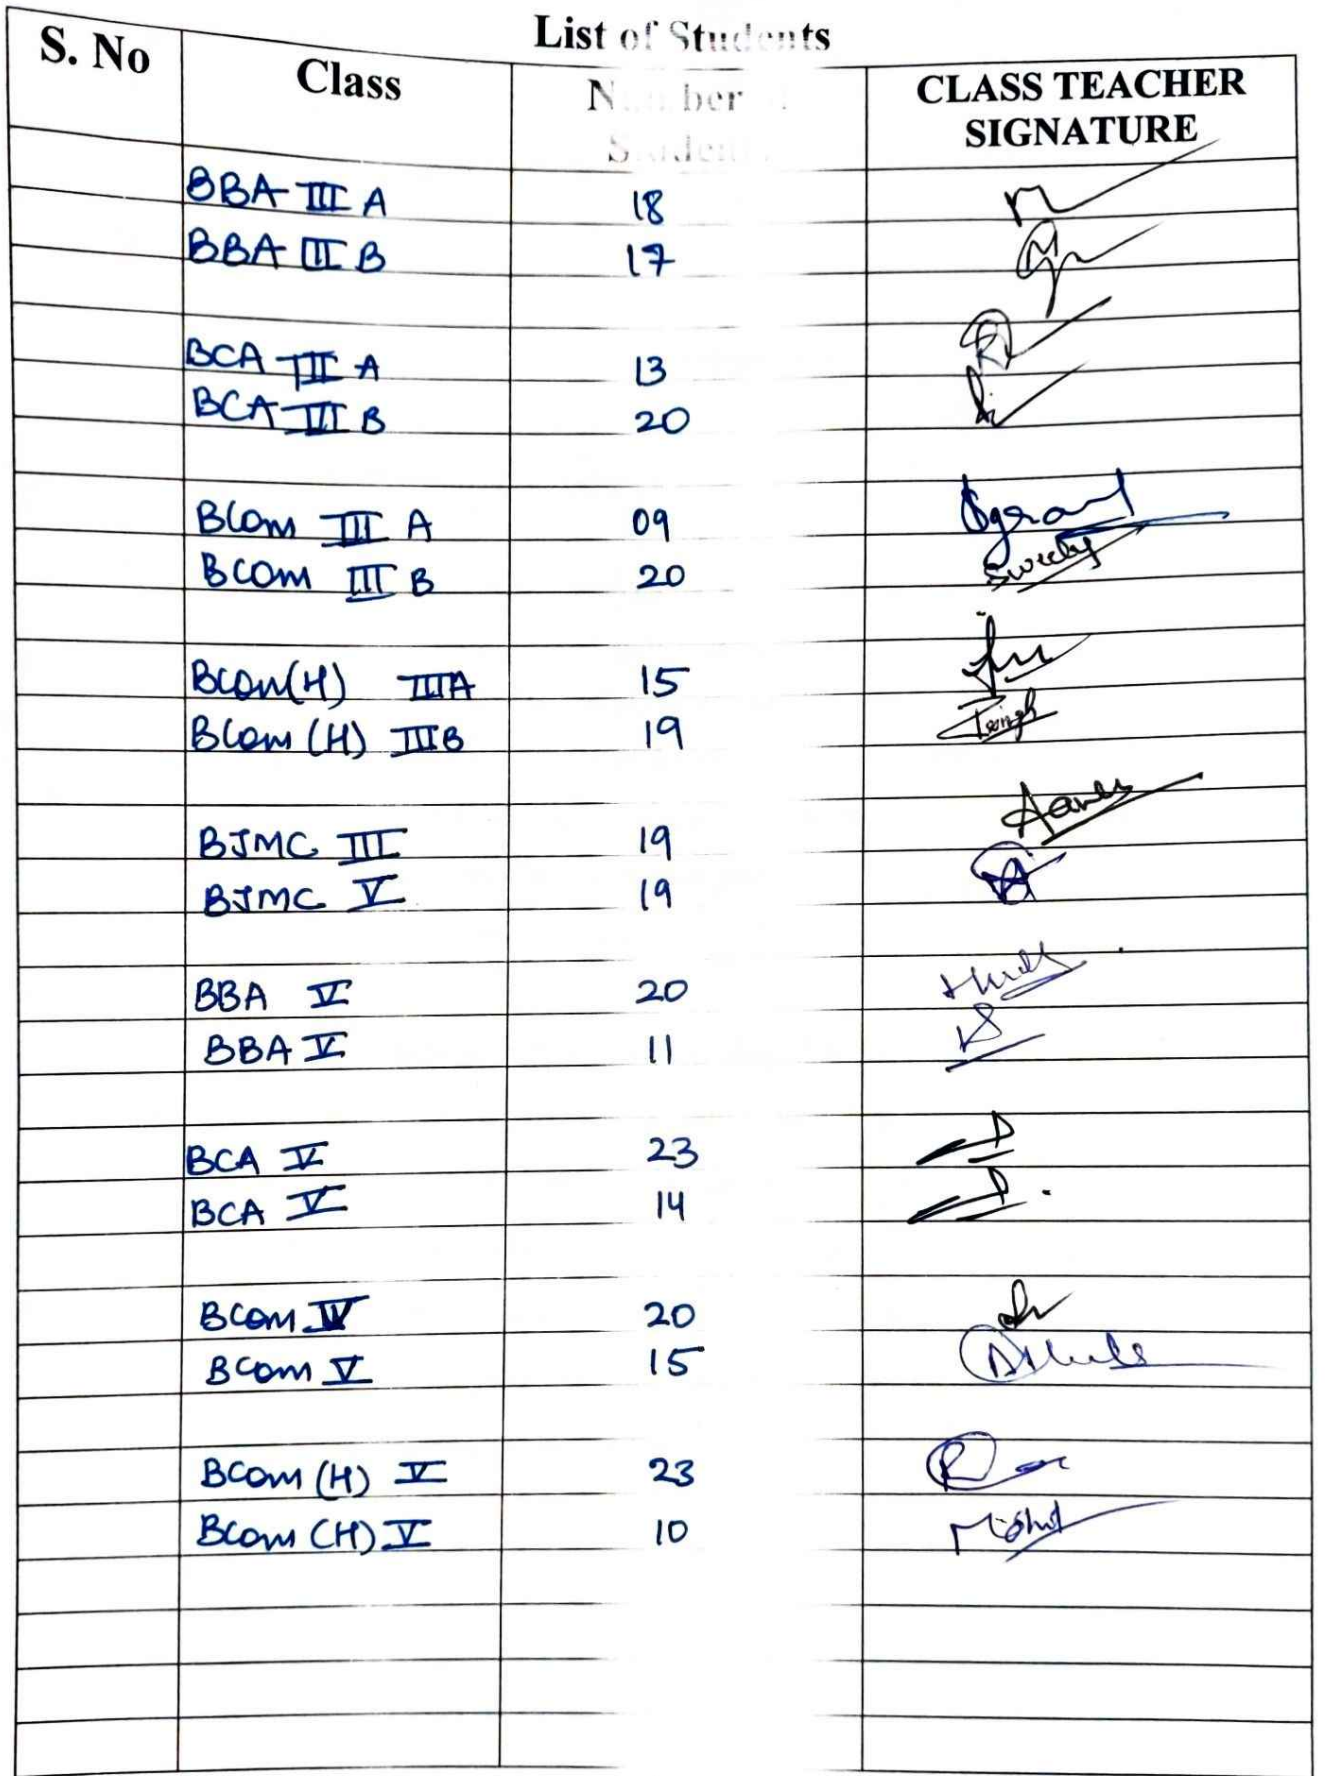 List of Students
S. No Class Number of Students CLASS TEACHER SIGNATURE
BBA III A 18
BBA III B 17
BCA III A 13
BCA III B 20
BCom III A 09
BCom III B 20 Sweety
BCom(H) III A 15
BCom (H) III B 19
BJMC III 19
BJMC V 19
BBA V 20
BBA V 11
BCA V 23
BCA V 14
BCom V 20
BCom V 15
BCom (H) V 23
BCom (H) V 10 Mohit